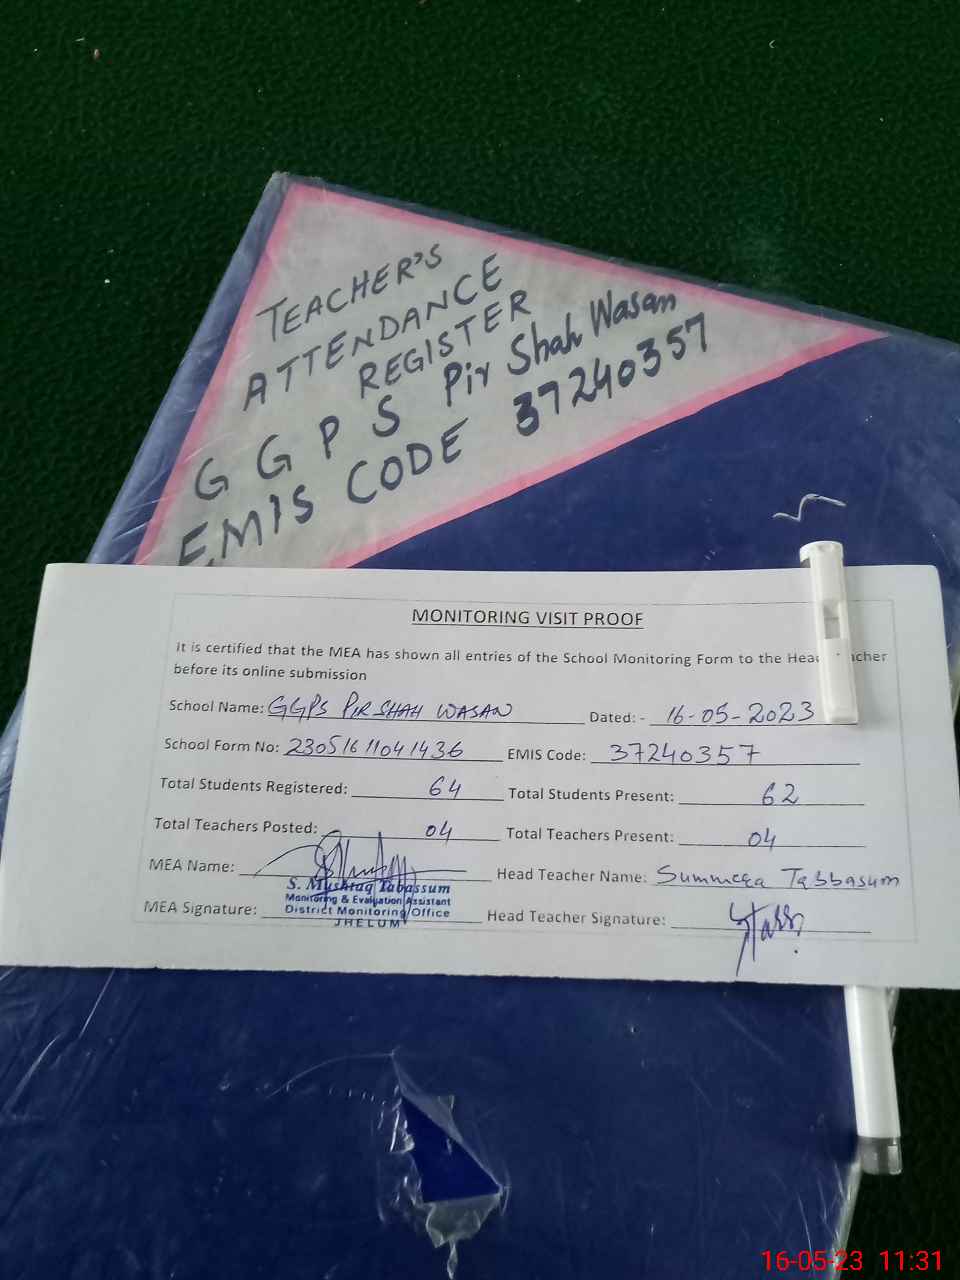 TEACHER'S
ATTENDANCE
REGISTER
G G P S Pir Shah Wasan
EMIS CODE 37240357
MONITORING VISIT PROOF
It is certified that the MEA has shown all entries of the School Monitoring Form to the Head
before its online submission
School Name: GGPS PIR SHAH WASAN Dated: - 16-05-2023
School Form No: 23051611041436 EMIS Code: 37240357
Total Students Registered: 64 Total Students Present: 62
Total Teachers Posted: 04 Total Teachers Present: 04
MEA Name: Head Teacher Name: Summeea Tabbasum
S. Mushtaq Tabassum
Monitoring & Evaluation Assistant
MEA Signature: District Monitoring Office Head Teacher Signature:
JHELUM
16-05-23 11:31